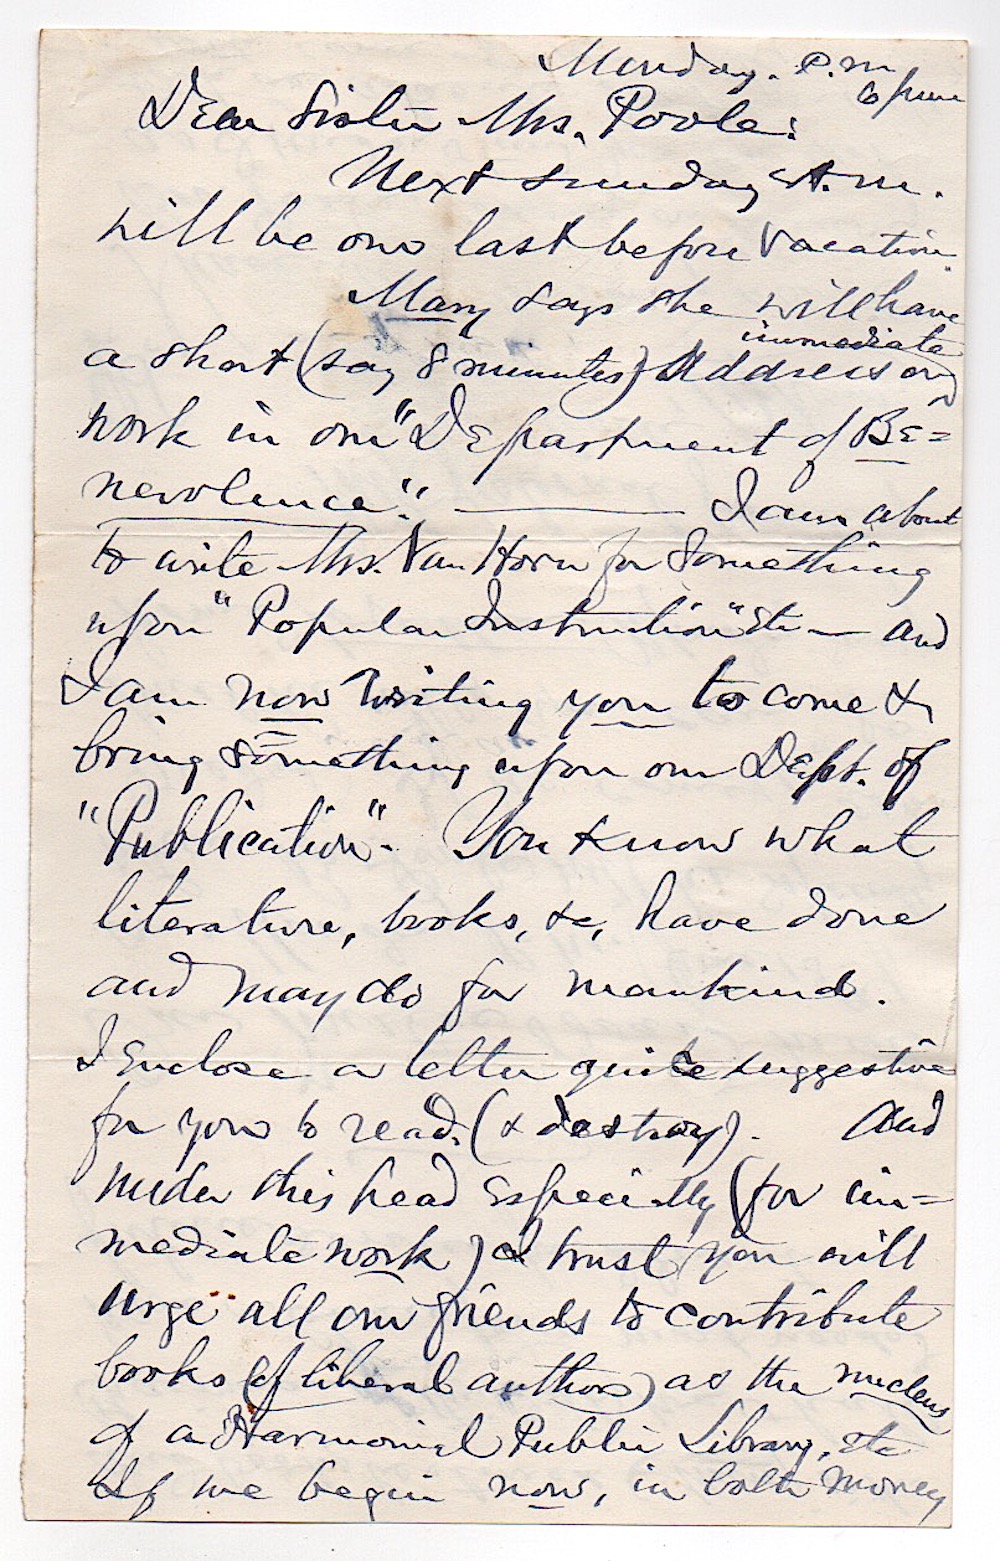 Monday. P.m.
6 June
Dear Sister Mrs. Poole:
Next Sunday A.m.
will be our last before Vacation.
Mary says she will have
a short (say 8 minutes) Address on
immediate
work in our "Department of Be=
nevolence". — I am about
to write Mrs. Van Horn for Something
upon "Popular Instruction" etc — and
I am now writing you to come &
bring something upon our Dept. of
"Publication". You know what
literature, books, &c, have done
and may do for mankind.
I Enclose a letter quite suggestive
for you to read. (& destroy). And
under this head Especially (for im=
mediate work) I trust you will
urge all our friends to contribute
books (of liberal authors) as the nucleus
of a Harmonial Public Library, etc
If we begin now, in both money